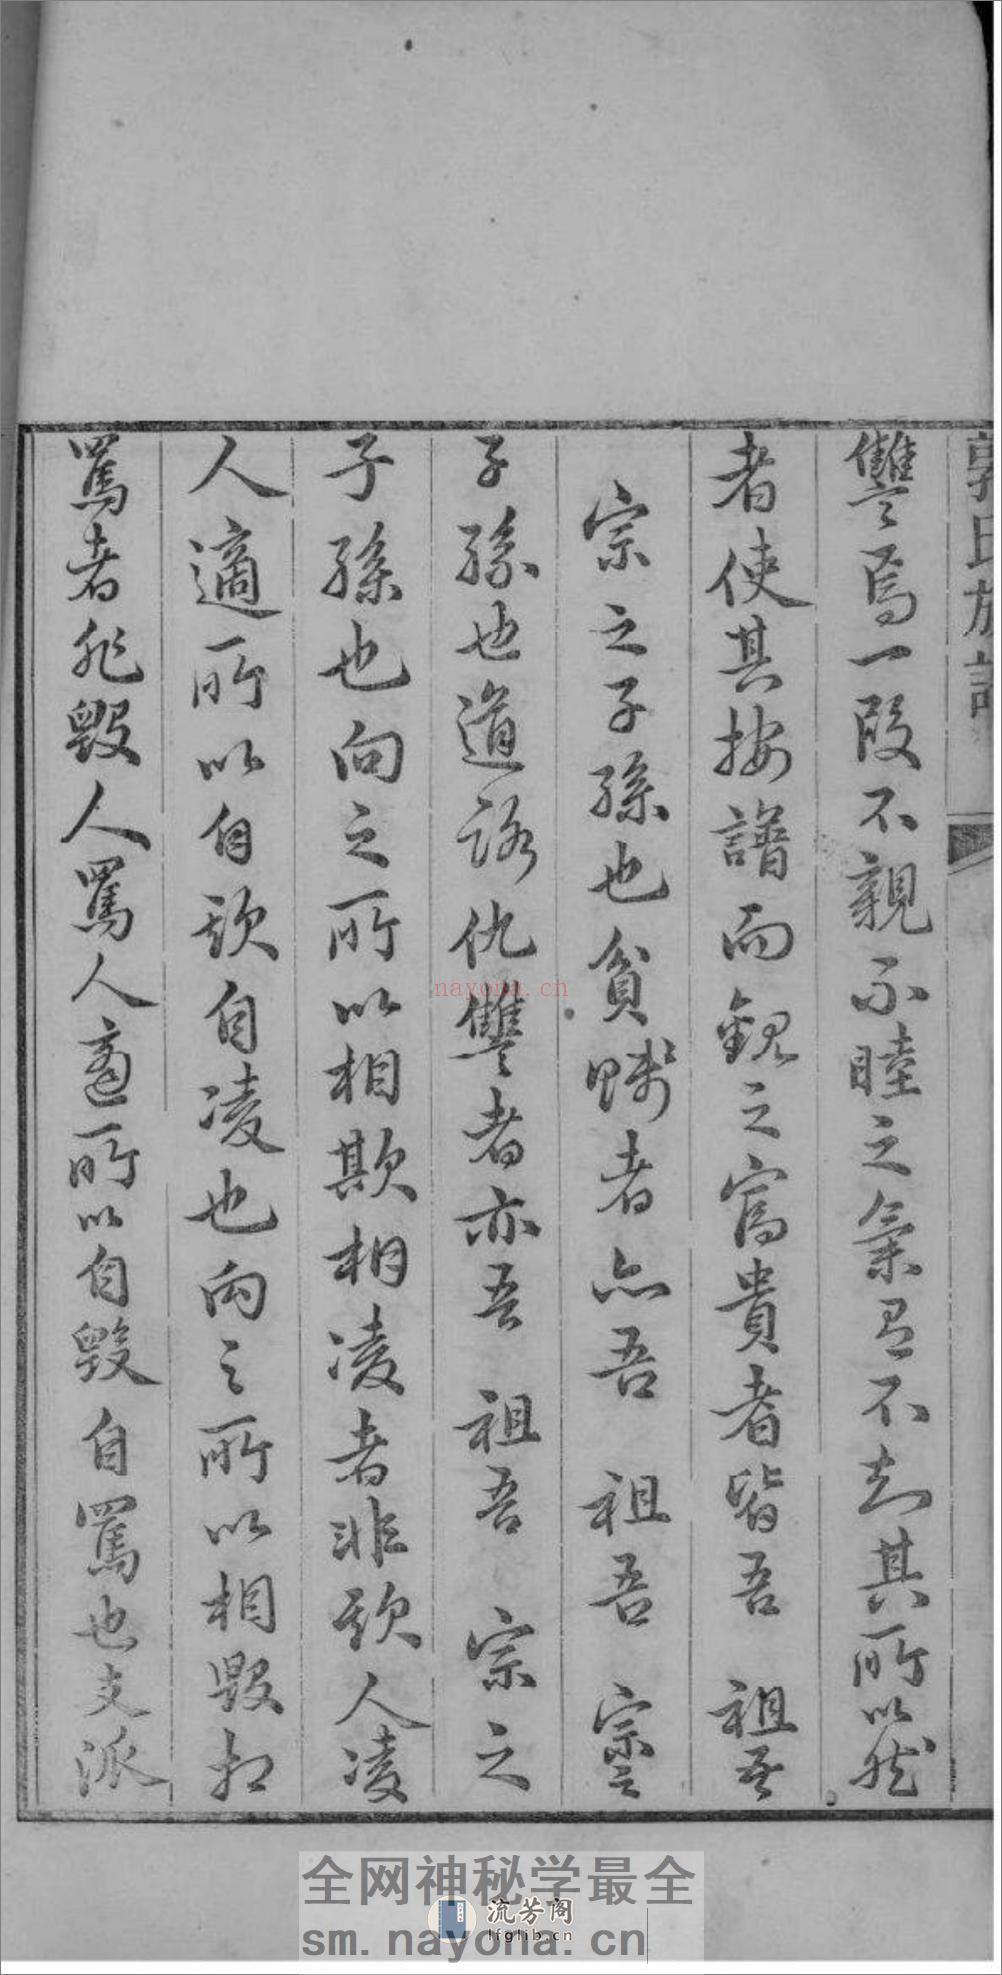 郭氏族譜
讐焉一段不親不睦之氣有不知其所以然
者使其按譜而觀之富貴者皆吾 祖吾
宗之子孫也貧賤者亦吾 祖吾 宗之
子孫也道路仇讐者亦吾 祖吾 宗之
子孫也向之所以相欺相凌者非欺人凌
人適所以自欺自凌也向之所以相毀相
罵者非毀人罵人適所以自毀自罵也支派
nayona.cn
全网神秘学最全
流芳阁
lfglib.cn
sm.nayona.cn